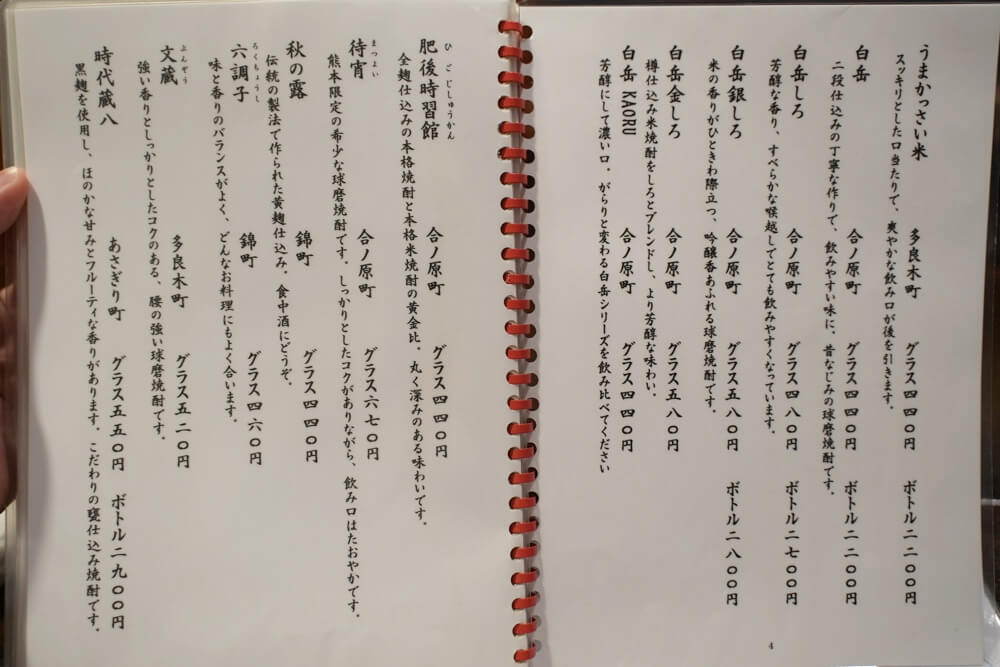 うまかっさい米　多良木町　グラス四四〇円　ボトル二二〇〇円
スッキリとした口当たりで、爽やかな飲み口が後を引きます。
白岳　合ノ原町　グラス四四〇円　ボトル二二〇〇円
二段仕込みの丁寧な作りで、飲みやすい味に、昔なじみの球磨焼酎です。
白岳しろ　合ノ原町　グラス四八〇円　ボトル二七〇〇円
芳醇な香り、すべらかな喉越しでとても飲みやすくなっています。
白岳銀しろ　合ノ原町　グラス五八〇円　ボトル二八〇〇円
米の香りがひときわ際立つ、吟醸香あふれる球磨焼酎です。
白岳金しろ　合ノ原町　グラス五八〇円
樽仕込み米焼酎をしろとブレンドし、より芳醇な味わい。
白岳 KAORU　合ノ原町　グラス四四〇円
芳醇にして濃い口。がらりと変わる白岳シリーズを飲み比べてください
4
ひごじしゅうかん
肥後時習館　合ノ原町　グラス四四〇円
全麹仕込みの本格焼酎と本格米焼酎の黄金比。丸く深みのある味わいです。
まつよい
待宵　合ノ原町　グラス六七〇円
熊本限定の希少な球磨焼酎です。しっかりとしたコクがありながら、飲み口はたおやかです。
秋の露　錦町　グラス四四〇円
伝統の製法で作られた黄麹仕込み、食中酒にどうぞ。
ろくちょうし
六調子　錦町　グラス四六〇円
味と香りのバランスがよく、どんなお料理にもよく合います。
ぶんぞう
文蔵　多良木町　グラス五二〇円
強い香りとしっかりとしたコクのある、腰の強い球磨焼酎です。
時代蔵八　あさぎり町　グラス五五〇円　ボトル二九〇〇円
黒麹を使用し、ほのかな甘みとフルーティな香りがあります。こだわりの甕仕込み焼酎です。